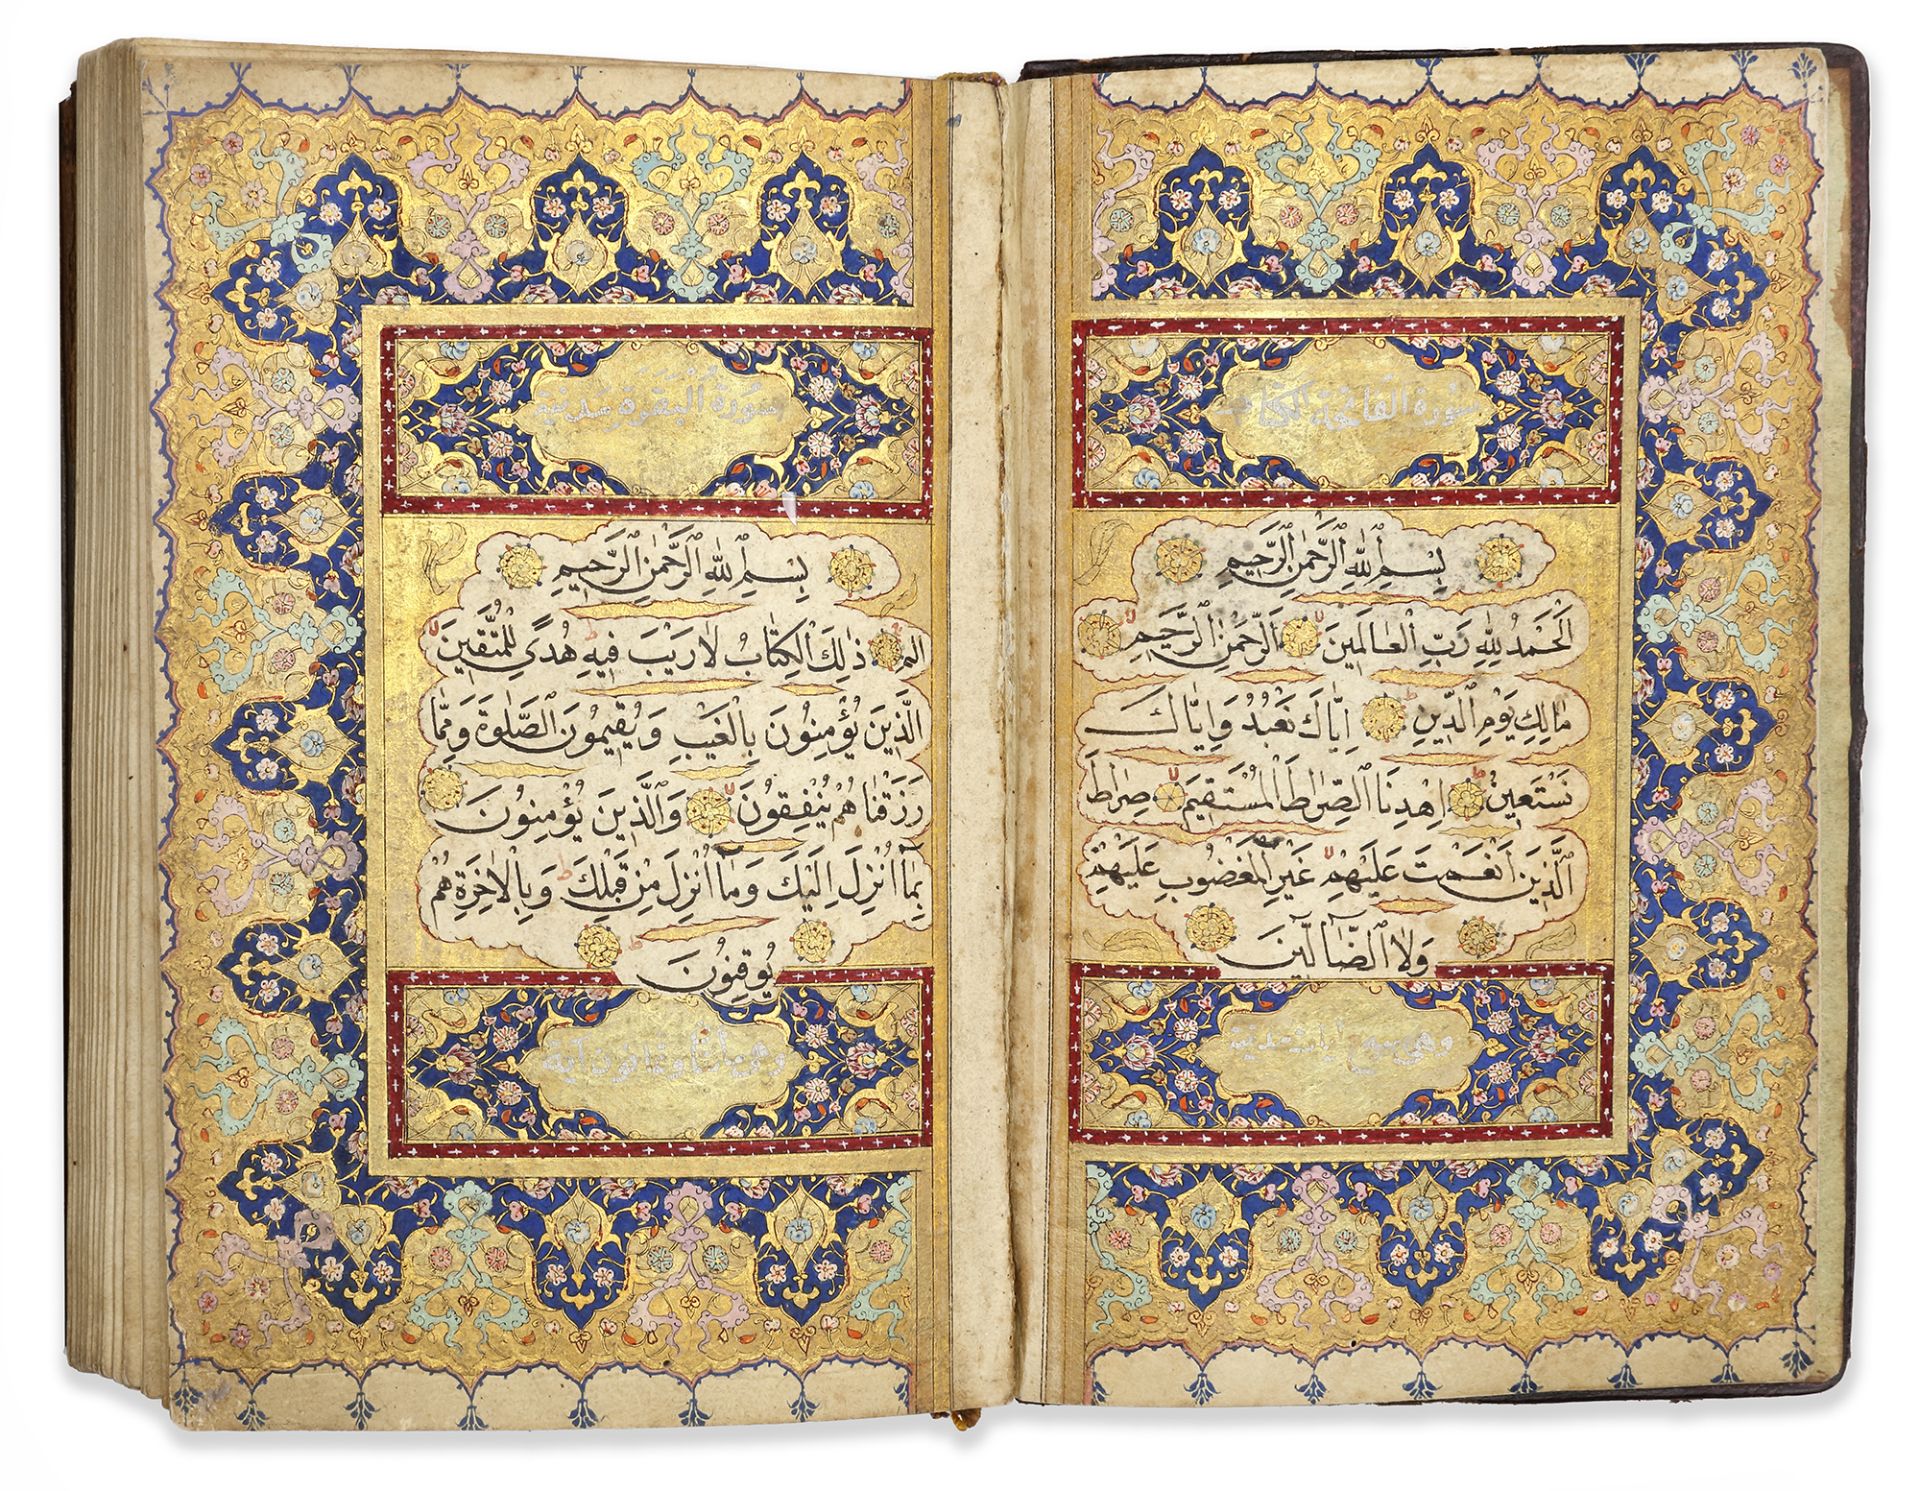 سورة الفاتحة الكتاب
بِسْمِ ٱللهِ ٱلرَّحْمٰنِ ٱلرَّحِيمِ
اَلْحَمْدُ لِلّٰهِ رَبِّ ٱلْعَالَمِينَ اَلرَّحْمٰنِ ٱلرَّحِيمِ
مَالِكِ يَوْمِ ٱلدِّينِ اِيَّاكَ نَعْبُدُ وَاِيَّاكَ
نَسْتَعِينُ اِهْدِنَا ٱلصِّرَاطَ ٱلْمُسْتَقِيمَ صِرَاطَ
ٱلَّذِينَ اَنْعَمْتَ عَلَيْهِمْ غَيْرِ ٱلْمَغْضُوبِ عَلَيْهِمْ
وَلَا ٱلضَّآلِّينَ
وهي سبع
سُورَةُ الْبَقَرَة مدنية
بِسْمِ ٱللهِ ٱلرَّحْمٰنِ ٱلرَّحِيمِ
الٓمٓ ذٰلِكَ ٱلْكِتَابُ لَا رَيْبَ فِيهِ هُدًى لِلْمُتَّقِينَ
ٱلَّذِينَ يُؤْمِنُونَ بِٱلْغَيْبِ وَيُقِيمُونَ ٱلصَّلٰوةَ وَمِمَّا
رَزَقْنَاهُمْ يُنْفِقُونَ وَٱلَّذِينَ يُؤْمِنُونَ
بِمَآ اُنْزِلَ اِلَيْكَ وَمَآ اُنْزِلَ مِنْ قَبْلِكَ وَبِٱلْاٰخِرَةِ هُمْ
يُوقِنُونَ
وهي مائتان وثمانون آية